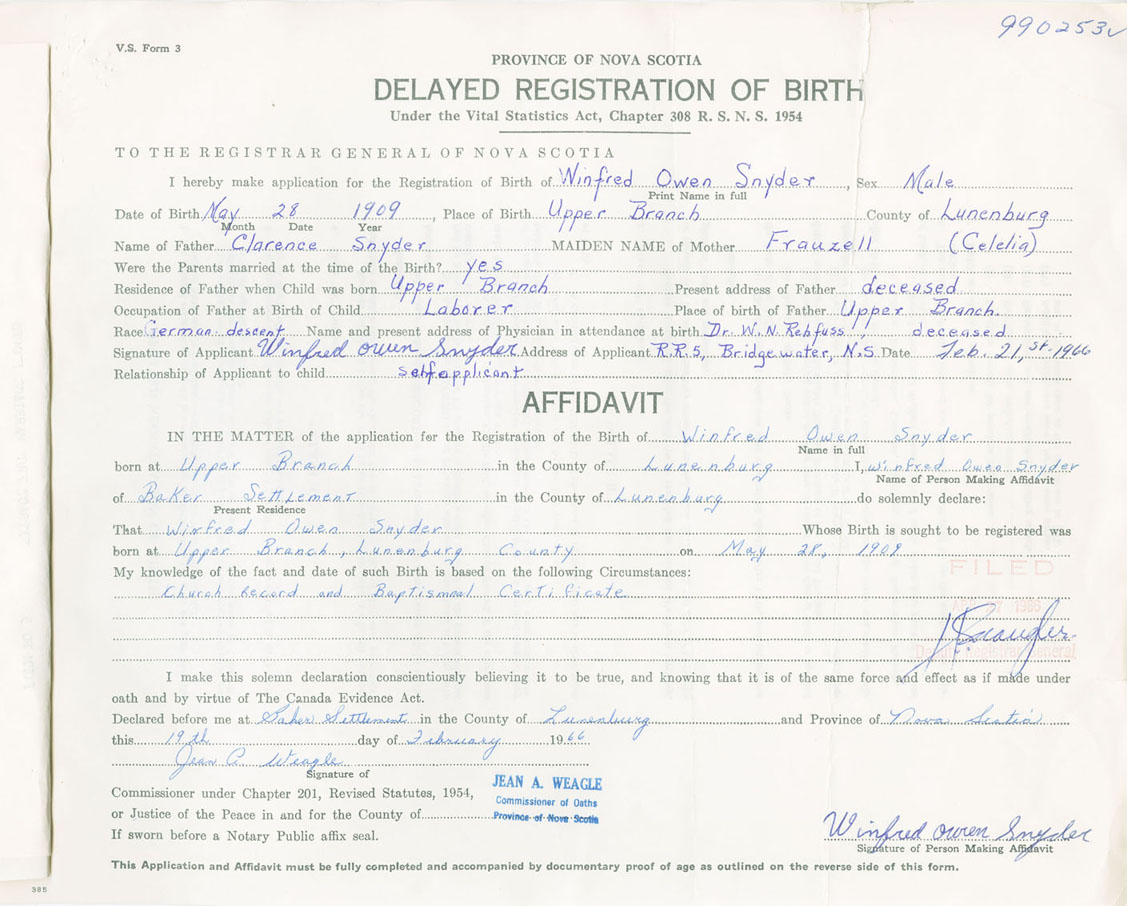 990253
V.S. Form 3
PROVINCE OF NOVA SCOTIA
DELAYED REGISTRATION OF BIRTH
Under the Vital Statistics Act, Chapter 308 R. S. N. S. 1954
TO THE REGISTRAR GENERAL OF NOVA SCOTIA
I hereby make application for the Registration of Birth of Winfred Owen Snyder, Sex Male
Print Name in full
Date of Birth May 28 1909, Place of Birth Upper Branch County of Lunenburg
Month Date Year
Name of Father Clarence Snyder MAIDEN NAME of Mother Frauzell (Celelia)
Were the Parents married at the time of the Birth? yes
Residence of Father when Child was born Upper Branch Present address of Father deceased
Occupation of Father at Birth of Child Laborer Place of birth of Father Upper Branch.
Race German descent Name and present address of Physician in attendance at birth Dr. W. N. Rehfuss, deceased
Signature of Applicant Winfred Owen Snyder Address of Applicant R.R.5, Bridgewater, N.S Date Feb. 21,st 1966
Relationship of Applicant to child self applicant
AFFIDAVIT
IN THE MATTER of the application for the Registration of the Birth of Winfred Owen Snyder
Name in full
born at Upper Branch in the County of Lunenburg I, Winfred Owen Snyder
Name of Person Making Affidavit
of Baker Settlement in the County of Lunenburg do solemnly declare:
Present Residence
That Winfred Owen Snyder Whose Birth is sought to be registered was
born at Upper Branch, Lunenburg County on May 28, 1909
My knowledge of the fact and date of such Birth is based on the following Circumstances:
FILED
Church Record and Baptismal Certificate
1966
Deputy Registrar General
I make this solemn declaration conscientiously believing it to be true, and knowing that it is of the same force and effect as if made under
oath and by virtue of The Canada Evidence Act.
Declared before me at Baker Settlement in the County of Lunenburg and Province of Nova Scotia
this 19th day of February 1966
Jean A. Weagle
Signature of
JEAN A. WEAGLE
Commissioner under Chapter 201, Revised Statutes, 1954,
Commissioner of Oaths
or Justice of the Peace in and for the County of
Province of Nova Scotia
Winfred Owen Snyder
If sworn before a Notary Public affix seal.
Signature of Person Making Affidavit
This Application and Affidavit must be fully completed and accompanied by documentary proof of age as outlined on the reverse side of this form.
385